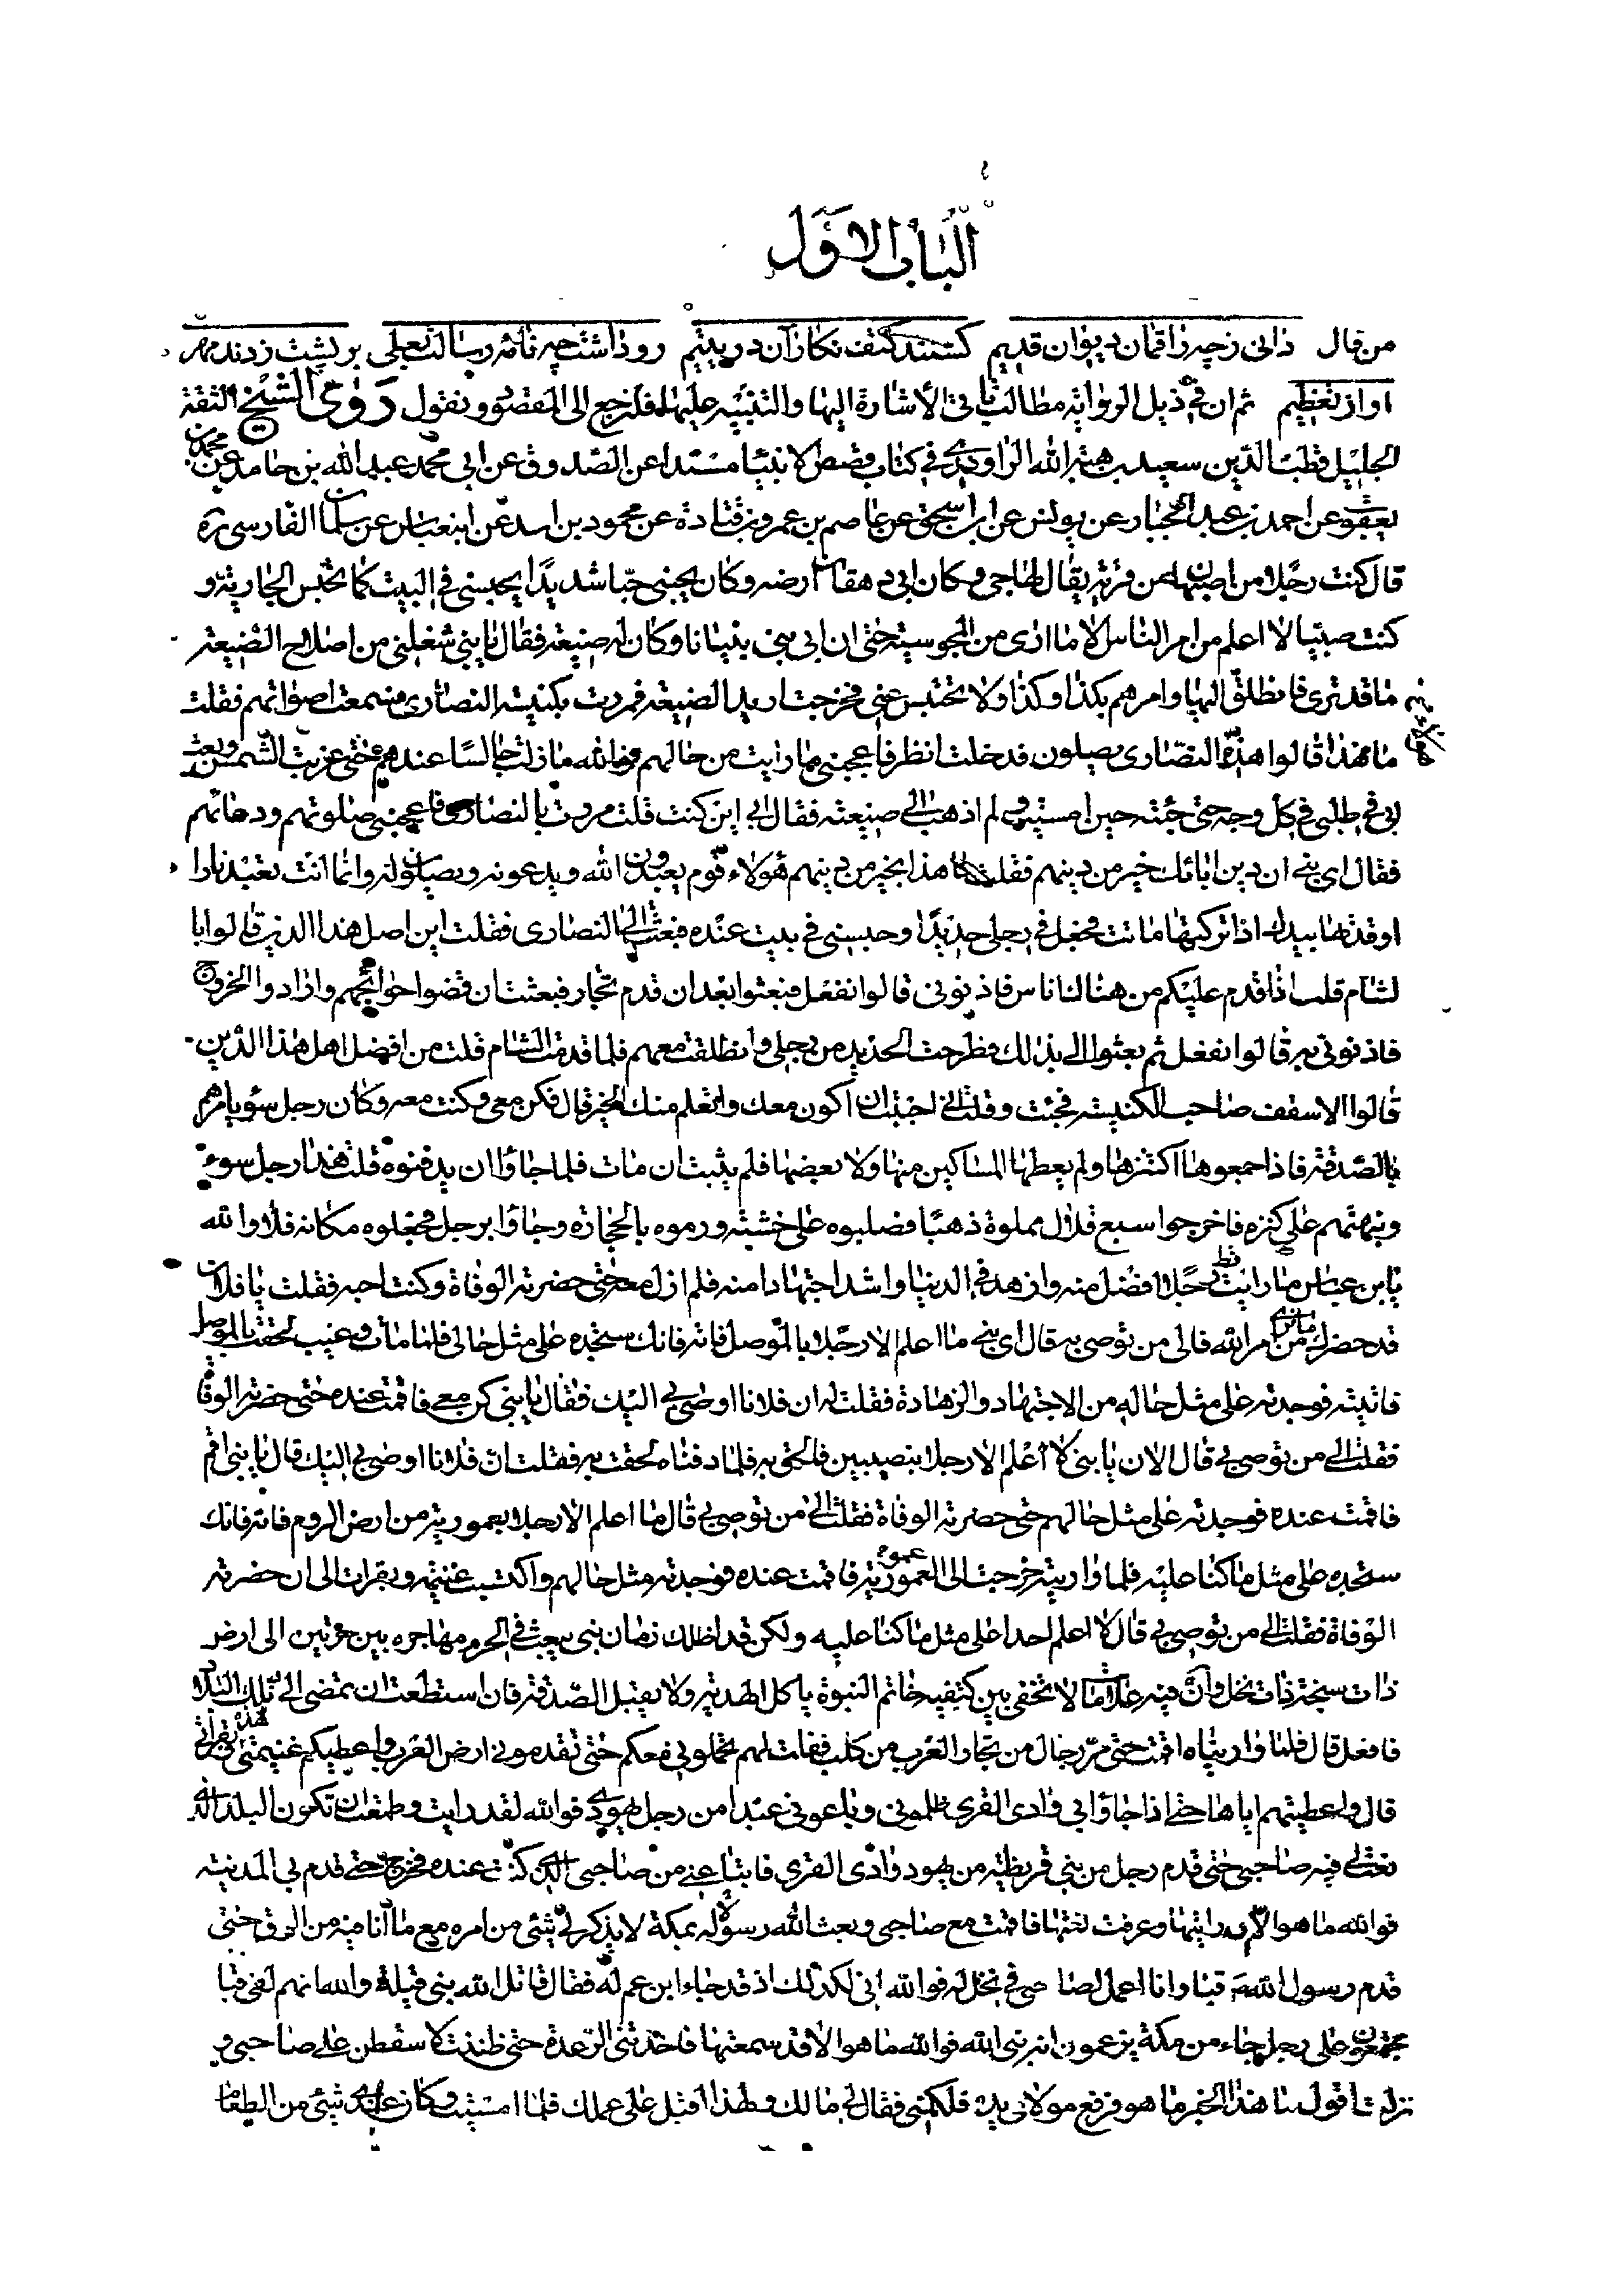 الباب الاول
من قال دانى زچه راقمان ديوان قديم كشتند كتف نكاران دريتيم روز اشتچه نامه رسالت يعلى بر پشت زدند مهر
او از تعظيم ثم ان فى ذيل الرواية مطالب ياتى الاشارة اليها والتنبيه عليها فلنرجع الى المقصود ونقول روى الشيخ الثقة
الجليل قطب الدين سعيد بن هبة الله الراوندى فى كتاب قصص الانبياء مسندا عن الصدوق عن ابى محمد عبد الله بن حامد عن محمد بن
يعقوب عن احمد بن عبد الجبار عن يونس عن ابن اسحق عن عاصم بن عمرو بن قتادة عن محمود بن اسد عن ابن عباس عن سلمان الفارسى ره
قال كنت رجلا من اصبهان من قرية يقال لها جى وكان ابى دهقان ارضه وكان يحبنى حبا شديدا يحبسنى فى البيت كما تحبس الجارية و
كنت صبيا لا اعلم من امر الناس الا ما ارى من المجوسية حتى ان ابى بنى بنيانا وكان له ضيعة فقال يا بنى شغلنى من اصلاح الضيعة
ما قد ترى فانطلق اليها وامرهم بكذا وكذا ولا تحتبس عنى فخرجت اريد الضيعة فمررت بكنيسة النصارى فسمعت اصواتهم فقلت
ما هذا قالوا هذه النصارى يصلون فدخلت انظر فاعجبنى ما رايت من حالهم فوالله ما زلت جالسا عندهم حتى غربت الشمس وبعث
ابى فى طلبى فى كل وجه حتى جئته حين امسيت ولم اذهب الى ضيعته فقال ابى اين كنت قلت مررت بالنصارى فاعجبنى صلوتهم ودعائهم
فقال اى بنى ان دين ابائك خير من دينهم فقلت لا ما هذا بخير من دينهم هؤلاء قوم يعبدون الله ويدعونه ويصلون له وانما انت تعبد نارا
اوقدتها بيدك اذا تركتها ماتت فجعل فى رجلى حديدا وحبسنى فى بيت عنده فبعثت الى النصارى فقلت اين اصل هذا الدين قالوا با
لشام قلت اذا قدم عليكم من هناك ناس فاذنونى قالوا نفعل فبعثوا بعد ان قدم تجار فبعثت ان قضوا حوائجهم وارادوا الخروج
فاذنونى به قالوا نفعل ثم بعثوا الى بذلك فطرحت الحديد من رجلى وانطلقت معهم فلما قدمت الشام قلت من افضل اهل هذا الدين
قالوا الاسقف صاحب الكنيسة فجئت وقلت انى احببت ان اكون معك واتعلم منك الخير قال فكن معى وكنت معه وكان رجل سوء يامرهم
بالصدقة فاذا جمعوها اكتنزها ولم يعطها المساكين منها ولا بعضها فلم يثبت ان مات فلما جاؤا ان يدفنوه قلت هذا رجل سوء
ونبهتهم على كنزه فاخرجوا سبع قلال مملوة ذهبا فصلبوه على خشبته ورموه بالحجارة وجاؤا برجل فجعلوه مكانه فلا والله
يا بن عباس ما رايت رجلا قط افضل منه وازهد فى الدنيا واشد اجتهادا منه فلم ازل معه حتى حضرته الوفاة وكنت احبه فقلت يا فلان
قد حضرك ما ترى من امر الله فالى من توصى به قال اى بنى ما اعلم الا رجلا بالموصل فاته فانك ستجده على مثل حالى فلما مات وغيب لحقت بالموصل
فاتيته فوجدته على مثل حاله من الاجتهاد والزهادة فقلت له ان فلانا اوصى بى اليك فقال يا بنى كن معى فاقمت عنده حتى حضرته الوفاة
فقلت الى من توصى بى قال الان يا بنى لا اعلم الا رجلا بنصيبين فالحق به فلما دفناه لحقت به فقلت ان فلانا اوصى بى اليك قال يا بنى اقم
فاقمت عنده فوجدته على مثل حالهم حتى حضرته الوفاة فقلت الى من توصى بى قال ما اعلم الا رجلا بعمورية من ارض الروم فاته فانك
ستجده على مثل ما كنا عليه فلما واريته خرجت الى العمورية فاقمت عنده فوجدته مثل حالهم واكتسبت غنيمة وبقرات الى ان حضرته
الوفاة فقلت الى من توصى بى قال لا اعلم احدا على مثل ما كنا عليه ولكن قد اظلك زمان نبى يبعث فى الحرم مهاجره بين حرتين الى ارض
ذات سبخة ذات نخل وان فيه علامات لا تخفى بين كتفيه خاتم النبوة ياكل الهدية ولا يقبل الصدقة فان استطعت ان تمضى الى تلك البلاد
فافعل قال فلما واريناه اقمت حتى مر رجال من تجار العرب من كلب فقلت لهم تحملونى معكم حتى تقدمونى ارض العرب واعطيكم غنيمتى هذه وبقراتى
قال واعطيتهم اياها حتى اذا جاؤا بى وادى القرى ظلمونى وباعونى عبدا من رجل يهودى فوالله لقد رايت وطمعت ان تكون البلد الذى
نعت لى فيه صاحبى حتى قدم رجل من بنى قريظة من يهود وادى القرى فابتاعنى من صاحبى الذى كنت عنده فخرج حتى قدم بى المدينة
فوالله ما هو الا ان رايتها وعرفت نعتها فاقمت مع صاحبى وبعث الله رسوله بمكة لا يذكر لى شئ من امره مع ما انا فيه من الرق حتى
قدم رسول الله ص قبا وانا اعمل لصاحبى فى نخل له فوالله انى لكذلك اذ قد جاء ابن عم له فقال قاتل الله بنى قيلة والله انهم لفى قبا
مجتمعون على رجل جاء من مكة يزعمون انه نبى الله فوالله ما هو الا قد سمعتها فاخذتنى الرعدة حتى ظننت لاسقطن على صاحبى و
نزلت اقول ما هذا الخبر ما هو فرفع مولاى يده فلكمنى فقال لى مالك ولهذا اقبل على عملك فلما امسيت وكان عندى شئ من الطعام